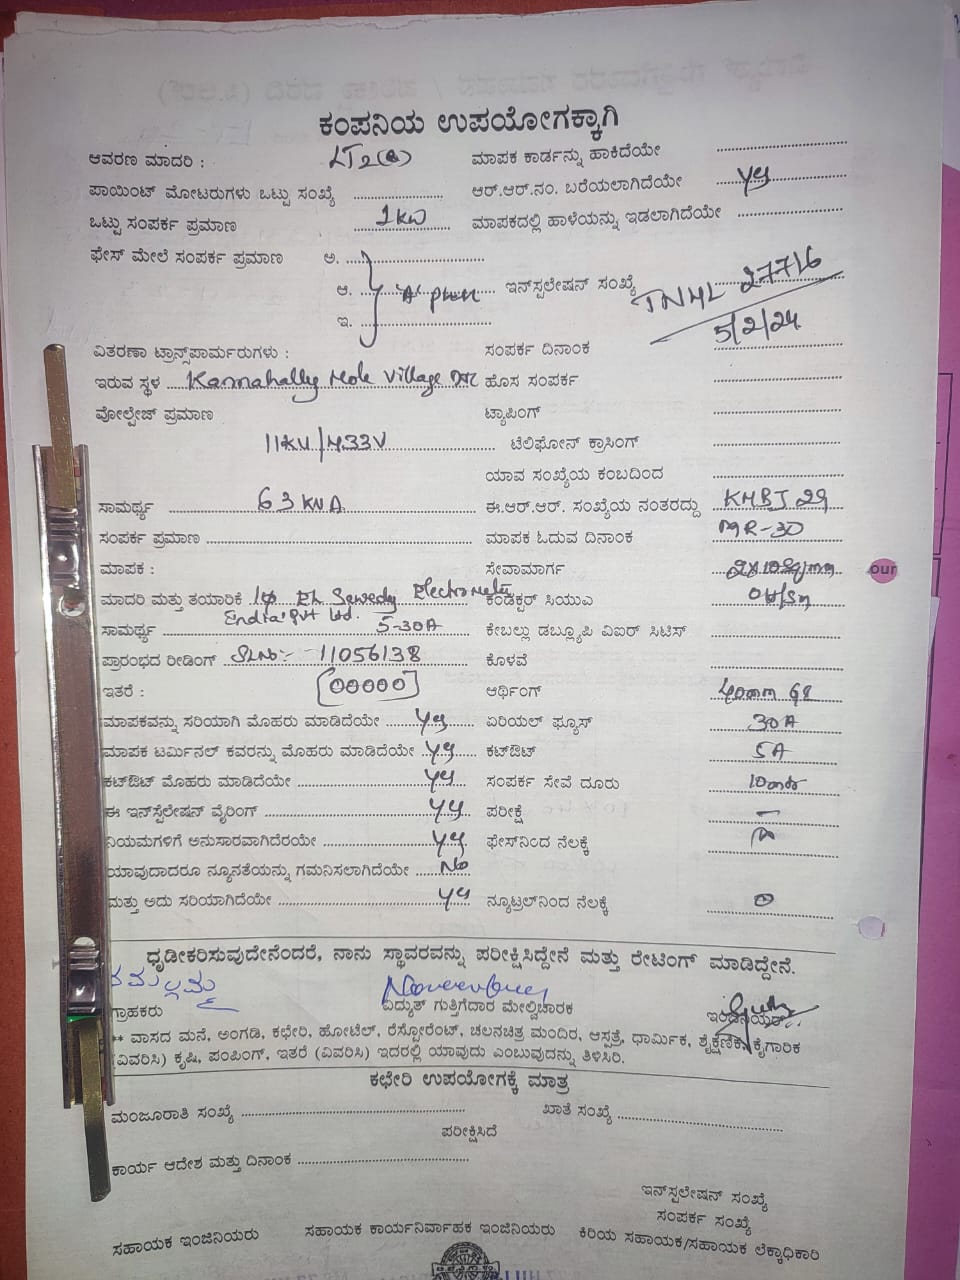 ಕಂಪನಿಯ ಉಪಯೋಗಕ್ಕಾಗಿ
ಆವರಣ ಮಾದರಿ : LT2(a) ಮಾಪಕ ಕಾರ್ಡನ್ನು ಹಾಕಿದೆಯೇ
ಪಾಯಿಂಟ್ ಮೋಟರುಗಳು ಒಟ್ಟು ಸಂಖ್ಯೆ ಆರ್.ಆರ್.ನಂ. ಬರೆಯಲಾಗಿದೆಯೇ yes
ಒಟ್ಟು ಸಂಪರ್ಕ ಪ್ರಮಾಣ 1KW ಮಾಪಕದಲ್ಲಿ ಹಾಳೆಯನ್ನು ಇಡಲಾಗಿದೆಯೇ
ಫೇಸ್ ಮೇಲೆ ಸಂಪರ್ಕ ಪ್ರಮಾಣ ಅ.
ಆ. 'A' ಇನ್‌ಸ್ಪಲೇಷನ್ ಸಂಖ್ಯೆ TNHL 27716
ಇ. 5/2/24
ವಿತರಣಾ ಟ್ರಾನ್ಸ್‌ಪಾರ್ಮರುಗಳು : ಸಂಪರ್ಕ ದಿನಾಂಕ
ಇರುವ ಸ್ಥಳ Kannahally Mole Village ಹೊಸ ಸಂಪರ್ಕ
ವೋಲ್ಟೇಜ್ ಪ್ರಮಾಣ ಟ್ಯಾಪಿಂಗ್
11KV/433V ಟೆಲಿಫೋನ್ ಕ್ರಾಸಿಂಗ್
ಯಾವ ಸಂಖ್ಯೆಯ ಕಂಬದಿಂದ
ಸಾಮರ್ಥ್ಯ 63 KVA ಈ.ಆರ್.ಆರ್. ಸಂಖ್ಯೆಯ ನಂತರದ್ದು KMBJ 29
ಸಂಪರ್ಕ ಪ್ರಮಾಣ ಮಾಪಕ ಓದುವ ದಿನಾಂಕ MR-30
ಮಾಪಕ : ಸೇವಾಮಾರ್ಗ our
ಮಾದರಿ ಮತ್ತು ತಯಾರಿಕೆ 1φ El Sewedy Electrometer ಕಂಡಕ್ಟರ್ ಸಿಯುಎ
India Pvt Ltd.
ಸಾಮರ್ಥ್ಯ 5-30A ಕೇಬಲ್ಲು ಡಬ್ಲ್ಯೂಪಿ ವಿಐರ್ ಸಿಟಿಸ್
ಪ್ರಾರಂಭದ ರೀಡಿಂಗ್ SLNo:- 11056138 ಕೊಳವೆ
ಇತರೆ : 00000 ಆರ್ಥಿಂಗ್ 40mm GI
ಮಾಪಕವನ್ನು ಸರಿಯಾಗಿ ಮೊಹರು ಮಾಡಿದೆಯೇ yes ಏರಿಯಲ್ ಫ್ಯೂಸ್ 30A
ಮಾಪಕ ಟರ್ಮಿನಲ್ ಕವರನ್ನು ಮೊಹರು ಮಾಡಿದೆಯೇ yes ಕಟ್‌ಔಟ್ 5A
ಕಟ್‌ಔಟ್ ಮೊಹರು ಮಾಡಿದೆಯೇ yes ಸಂಪರ್ಕ ಸೇವೆ ದೂರು
ಈ ಇನ್‌ಸ್ಪೆಲೇಷನ್ ವೈರಿಂಗ್ yes ಪರೀಕ್ಷೆ –
ನಿಯಮಗಳಿಗೆ ಅನುಸಾರವಾಗಿದೆರಯೇ yes ಫೇಸ್‌ನಿಂದ ನೆಲಕ್ಕೆ
ಯಾವುದಾದರೂ ನ್ಯೂನತೆಯನ್ನು ಗಮನಿಸಲಾಗಿದೆಯೇ No
ಮತ್ತು ಅದು ಸರಿಯಾಗಿದೆಯೇ yes ನ್ಯೂಟ್ರಲ್‌ನಿಂದ ನೆಲಕ್ಕೆ 0
ಧೃಡೀಕರಿಸುವುದೇನೆಂದರೆ, ನಾನು ಸ್ಥಾವರವನ್ನು ಪರೀಕ್ಷಿಸಿದ್ದೇನೆ ಮತ್ತು ರೇಟಿಂಗ್ ಮಾಡಿದ್ದೇನೆ.
ಗ್ರಾಹಕರು ವಿದ್ಯುತ್ ಗುತ್ತಿಗೆದಾರ ಮೇಲ್ವಿಚಾರಕ ಇಂಜಿನಿಯರ್
** ವಾಸದ ಮನೆ, ಅಂಗಡಿ, ಕಛೇರಿ, ಹೋಟೆಲ್, ರೆಸ್ಟೋರೆಂಟ್, ಚಲನಚಿತ್ರ ಮಂದಿರ, ಆಸ್ಪತ್ರೆ, ಧಾರ್ಮಿಕ, ಶೈಕ್ಷಣಿಕ, ಕೈಗಾರಿಕ
(ವಿವರಿಸಿ) ಕೃಷಿ, ಪಂಪಿಂಗ್, ಇತರೆ (ವಿವರಿಸಿ) ಇದರಲ್ಲಿ ಯಾವುದು ಎಂಬುವುದನ್ನು ತಿಳಿಸಿರಿ.
ಕಛೇರಿ ಉಪಯೋಗಕ್ಕೆ ಮಾತ್ರ
ಮಂಜೂರಾತಿ ಸಂಖ್ಯೆ ಖಾತೆ ಸಂಖ್ಯೆ
ಪರೀಕ್ಷಿಸಿದೆ
ಕಾರ್ಯ ಆದೇಶ ಮತ್ತು ದಿನಾಂಕ
ಇನ್‌ಸ್ಪಲೇಷನ್ ಸಂಖ್ಯೆ
ಸಂಪರ್ಕ ಸಂಖ್ಯೆ
ಸಹಾಯಕ ಇಂಜಿನಿಯರು ಸಹಾಯಕ ಕಾರ್ಯನಿರ್ವಾಹಕ ಇಂಜಿನಿಯರು ಕಿರಿಯ ಸಹಾಯಕ/ಸಹಾಯಕ ಲೆಕ್ಕಾಧಿಕಾರಿ